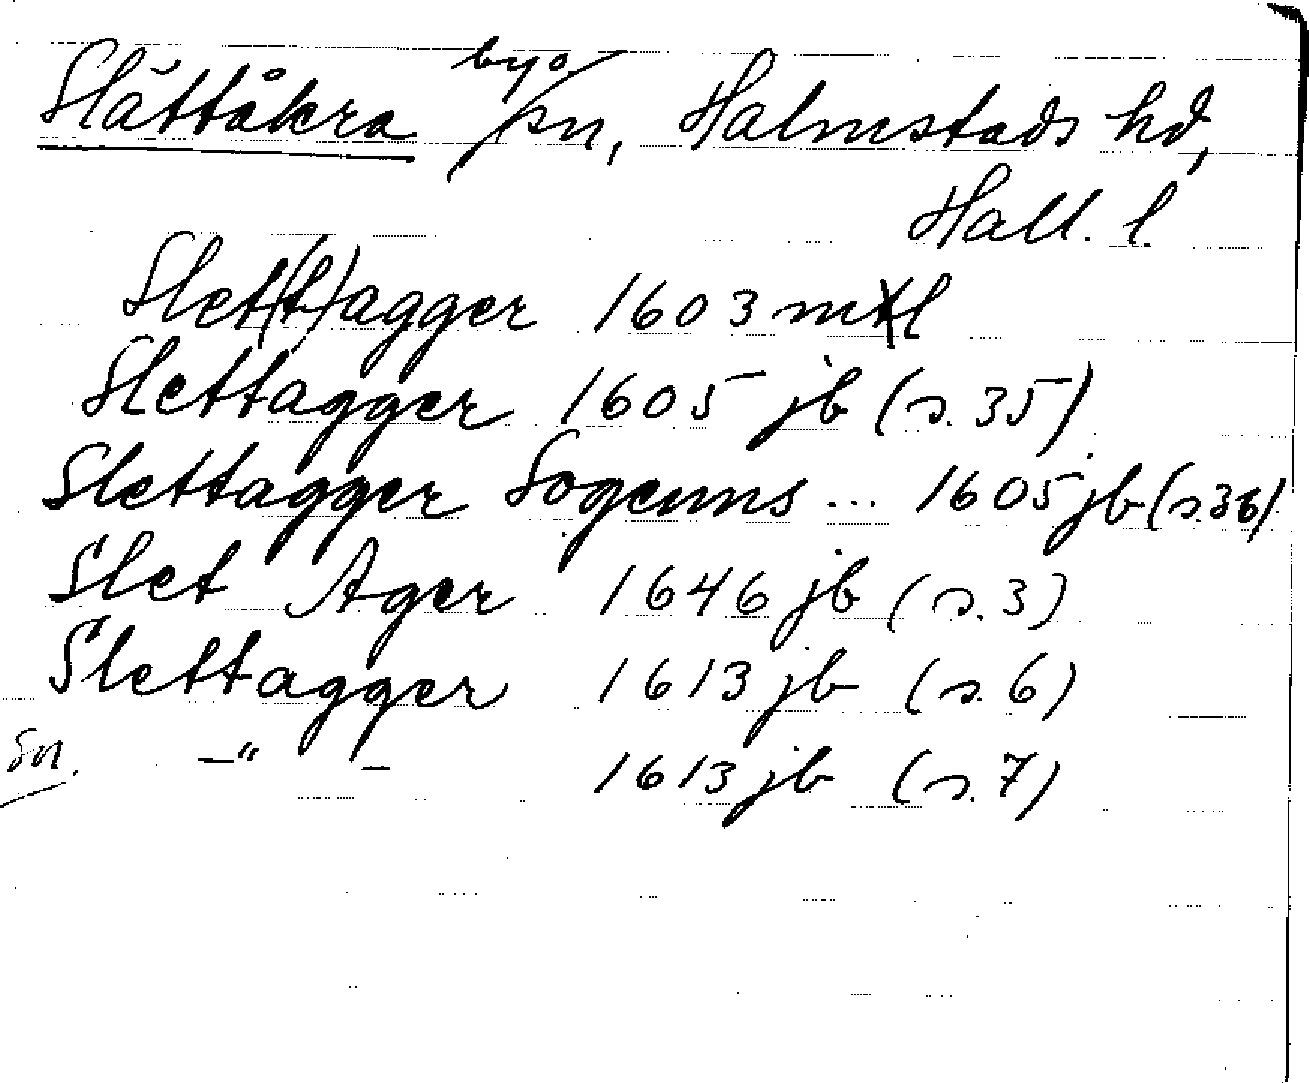 Slättåkra by o sn, Halmstads hd,
Hall. l.
Slet(t)agger 1603 mtl
Slettagger 1605 jb (s. 35)
Slettagger Sogenns ... 1605 jb (s. 36)
Slet Ager 1646 jb (s. 3)
Slettagger 1613 jb (s. 6)
Sn. —"— 1613 jb (s. 7)